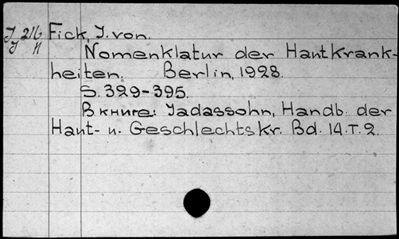 J 216 Fick, J. von.
J H
Nomenklatur der Hautkrank-
heiten. Berlin, 1928.
S. 329-395.
В книге: Jadassohn, Handb. der
Haut- u. Geschlechtskr. Bd. 14. T. 2.